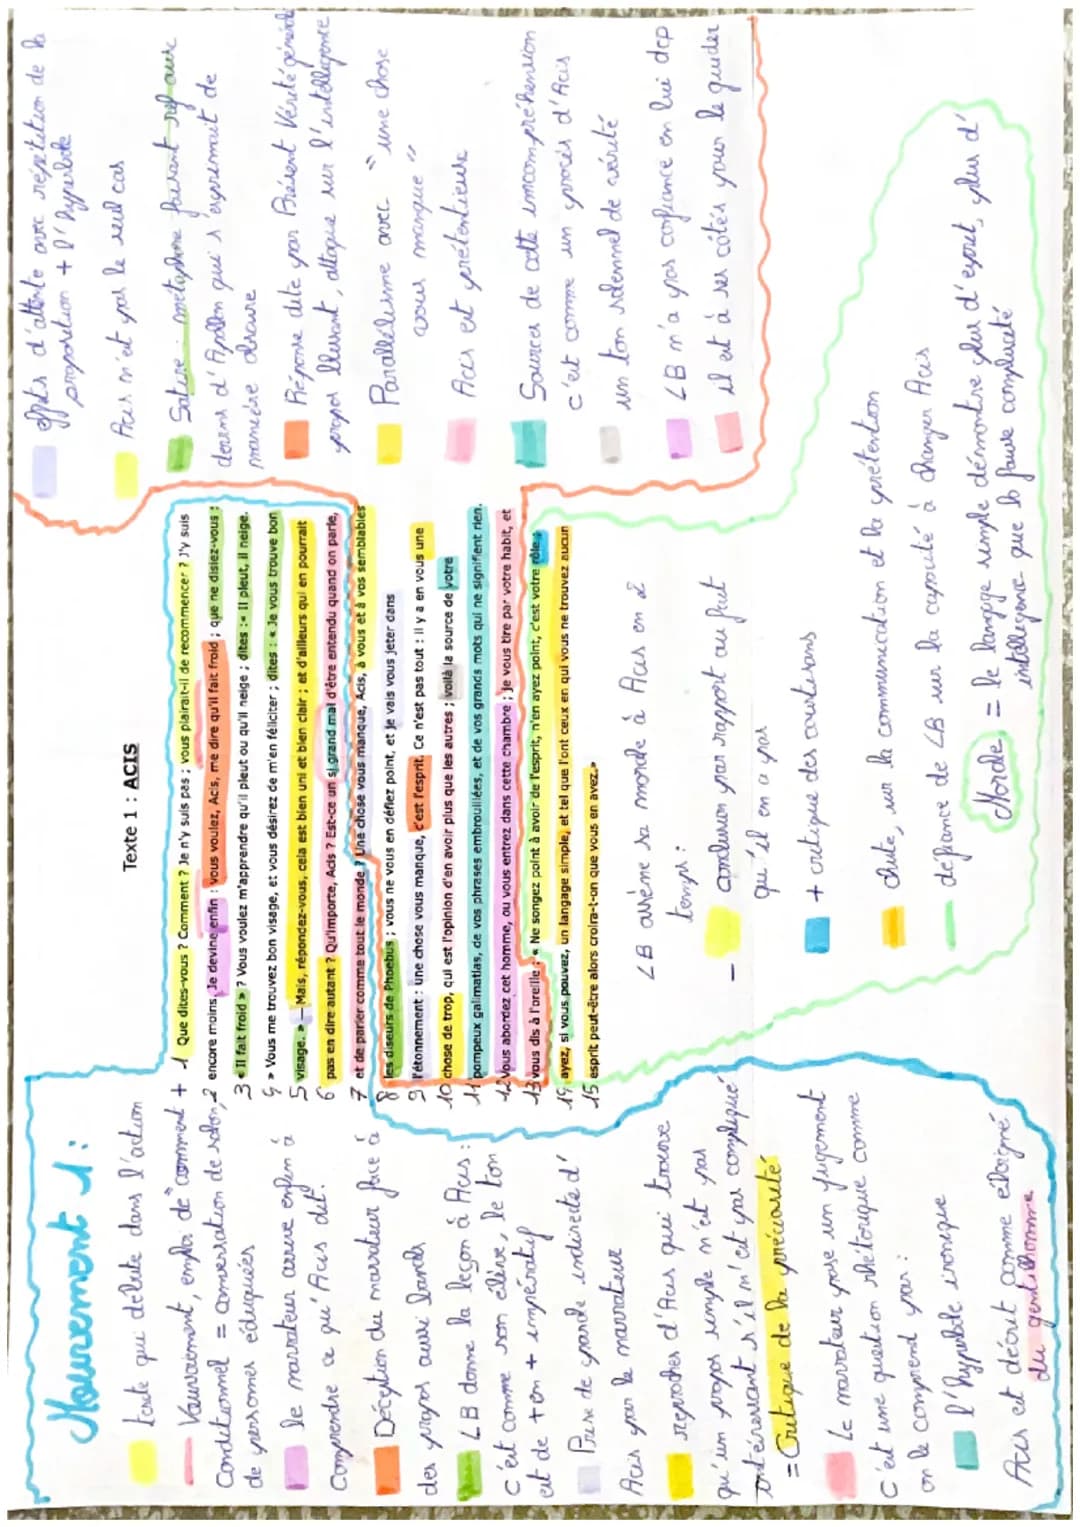 Mouvement 1 :
texte qui débute dans l'action
Vouvoiement, emploi de "comment" +
Conditionnel = conversation de salon,
de personnes éduquées
le narrateur arrive enfin à
Comprendre ce qu'Acis dit.
Déception du narrateur face à
des propos aussi banals
LB donne la leçon à Acis :
c'est comme son élève, le ton
est de ton + impératif
Prise de parole indirecte d'
Acis par le narrateur
reproches d'Acis qui trouve
qu'un propos simple n'est pas
intéressant s'il n'est pas compliqué
= Critique de la préciosité
Le narrateur pose un jugement
C'est une question rhétorique comme
on le comprend par :
l'hyperbole ironique
Acis est décrit comme éloigné
du gentilhomme
Texte 1 : ACIS
1 Que dites-vous ? Comment ? Je n'y suis pas ; vous plairait-il de recommencer ? J'y suis
2 encore moins. Je devine enfin : vous voulez, Acis, me dire qu'il fait froid ; que ne disiez-vous :
3 « Il fait froid » ? Vous voulez m'apprendre qu'il pleut ou qu'il neige ; dites : « Il pleut, il neige.
4 » Vous me trouvez bon visage, et vous désirez de m'en féliciter ; dites : « Je vous trouve bon
5 visage. » — Mais, répondez-vous, cela est bien uni et bien clair ; et d'ailleurs qui en pourrait
6 pas en dire autant ? Qu'importe, Acis ? Est-ce un si grand mal d'être entendu quand on parle,
7 et de parler comme tout le monde ? Une chose vous manque, Acis, à vous et à vos semblables
8 les diseurs de Phoebus ; vous ne vous en défiez point, et je vais vous jeter dans
9 l'étonnement : une chose vous manque, c'est l'esprit. Ce n'est pas tout : il y a en vous une
10 chose de trop, qui est l'opinion d'en avoir plus que les autres ; voilà la source de votre
11 pompeux galimatias, de vos phrases embrouillées, et de vos grands mots qui ne signifient rien.
12 Vous abordez cet homme, ou vous entrez dans cette chambre ; je vous tire par votre habit, et
13 vous dis à l'oreille : « Ne songez point à avoir de l'esprit, n'en ayez point, c'est votre rôle ;
14 ayez, si vous pouvez, un langage simple, et tel que l'ont ceux en qui vous ne trouvez aucun
15 esprit peut-être alors croira-t-on que vous en avez.»
LB assène sa morale à Acis en 2
temps :
- conclusion par rapport au fait
qu'il en a pas
+ critique des courtisans
chute, sur la communication et la prétention
défiance de LB sur la capacité à changer Acis
Morale = le langage simple démontre plus d'esprit, plus d'
intelligence que la fausse complexité
effets d'attente avec répétition de la
proposition + l'hyperbole
Acis n'est pas le seul cas
Satire : métaphore faisant ref aux
devins d'Apollon qui s'exprimait de
manière obscure
Réponse dite par Présent Vérité générale
propos blessant, attaque sur l'intelligence
Parallélisme avec "une chose
vous manque"
Acis est prétentieux
Sources de cette imcompréhension
c'est comme un procès d'Acis
un ton solennel de vérité
LB n'a pas confiance en lui dcp
il est à ses côtés pour le guider